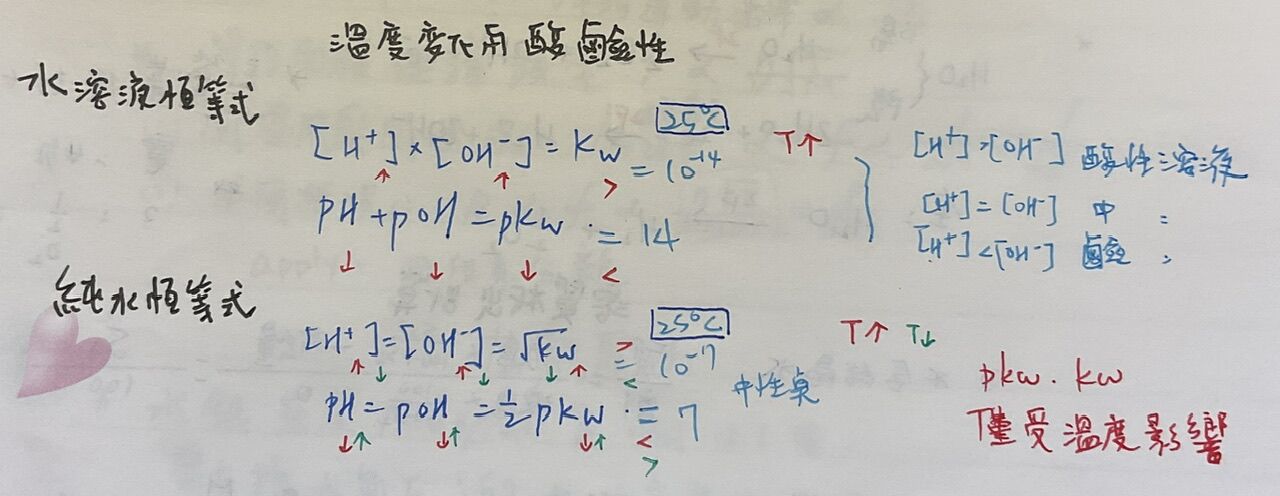 溫度變化用酸鹼性
水溶液恒等式
[H⁺]×[OH⁻]=Kw =10⁻¹⁴ 25°C T↑
↑ ↑ >
pH+pOH=pKw =14
↓ ↓ ↓ <
[H⁺]>[OH⁻] 酸性溶液
[H⁺]=[OH⁻] 中 〃
[H⁺]<[OH⁻] 鹼 〃
純水恒等式
[H⁺]=[OH⁻]=√Kw > = < 10⁻⁷ 25°C T↑ T↓
↑↓ ↑↓ ↓↑
pH=pOH=½pKw =7 中性点
↓↑ ↓↑ ↓↑ < >
pKw.Kw
僅受溫度影響